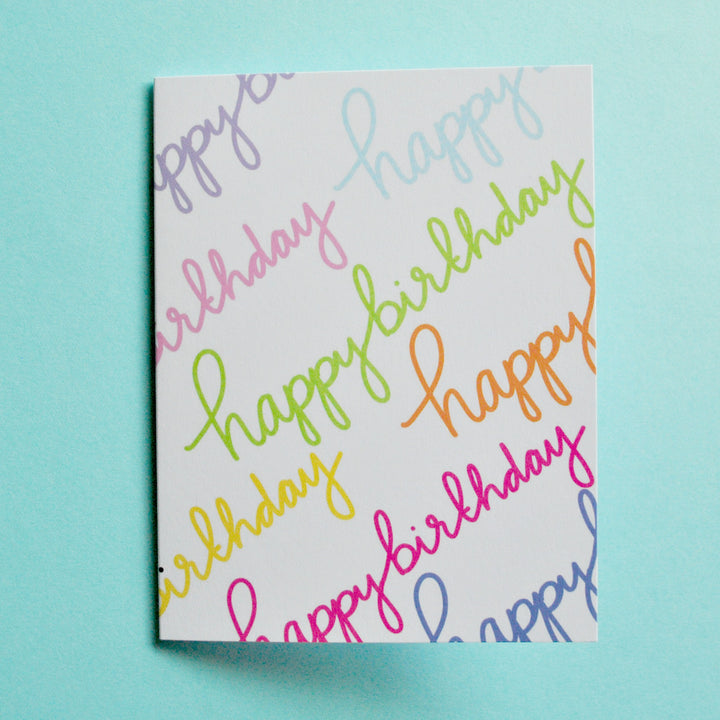 happy bi
happy b
birthday
happy birthday
happy b
birthday
happy birthday
happy b